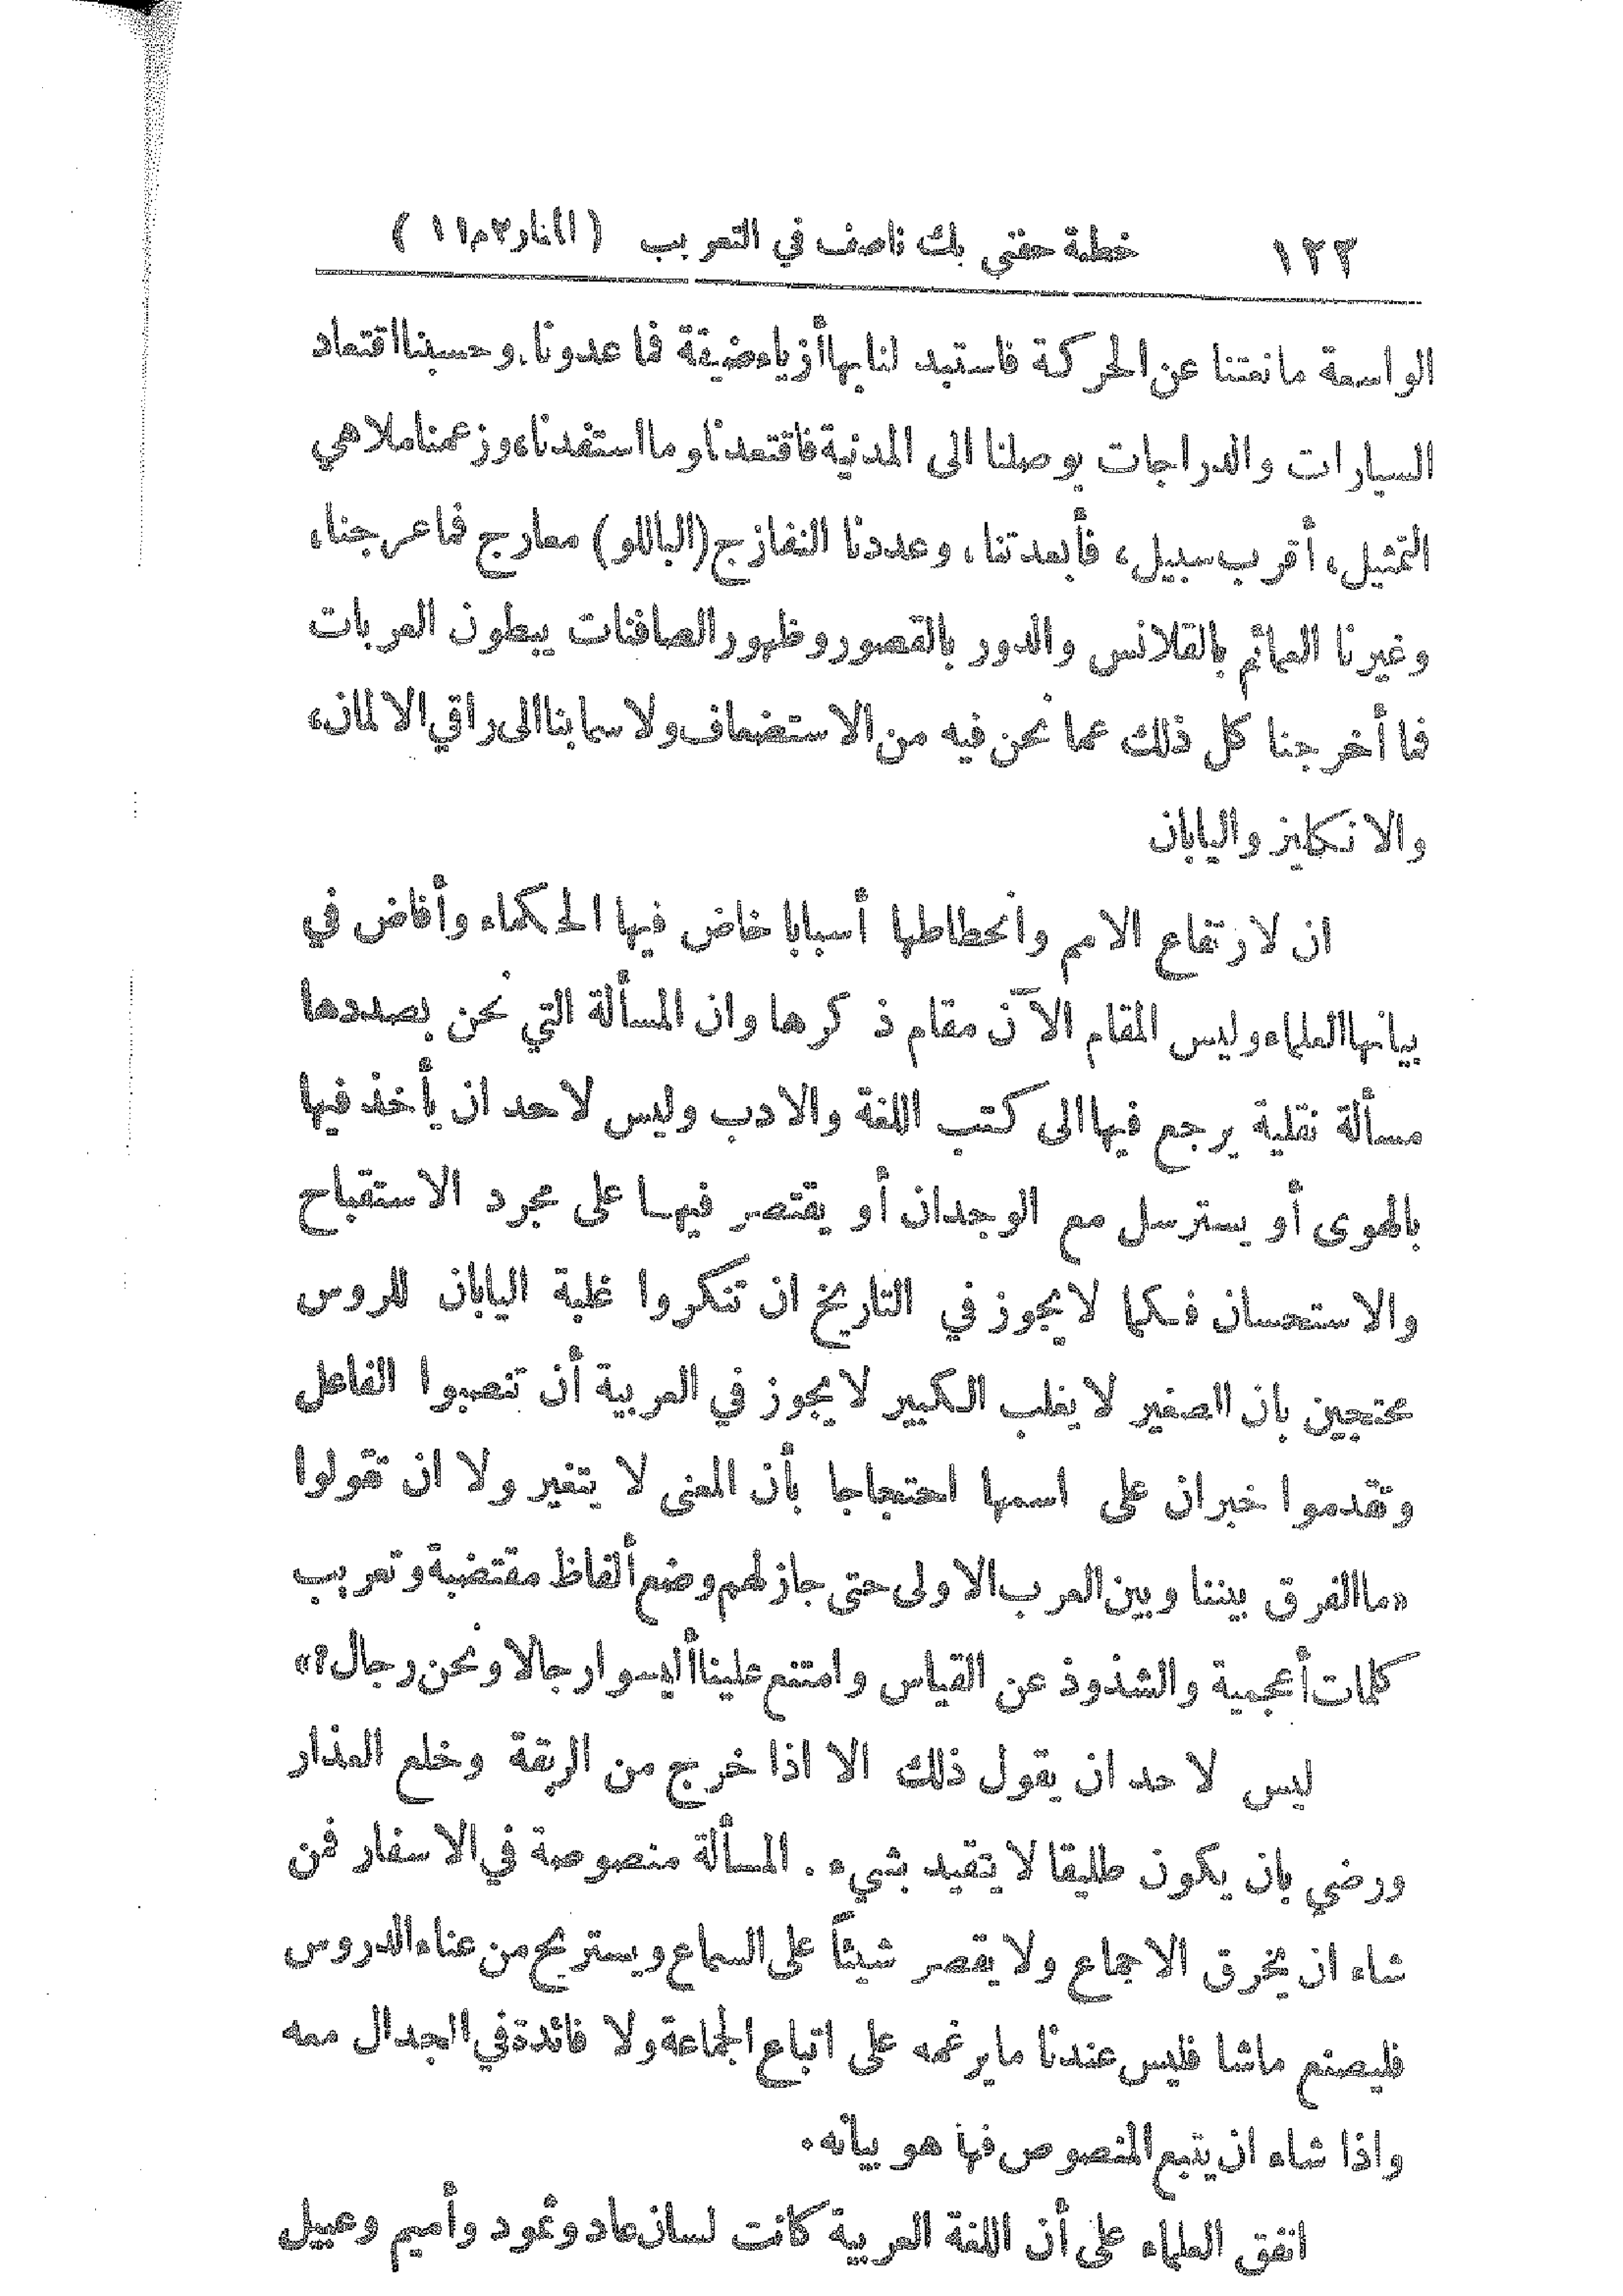 ١٢٢ خطبة حفني بك ناصف في التعريب (المنار٢م١١)
الواسعة مانعتنا عن الحركة فاستبد لنابها أزياء ضيقة فما عدونا، وحسبنا اقتعاد
السيارات والدراجات يوصلنا الى المدنية فاقتعدنا وما استفدنا، وزعمنا ملاهي
التمثيل، أقرب سبيل، فأبعدتنا، وعددنا النفازج (الباللو) معارج فما عرجنا،
وغيرنا العمائم بالقلانس والدور بالقصور وظهور الصافنات ببطون العربات
فما أخرجنا كل ذلك عما نحن فيه من الاستضعاف ولا سما بنا الى راقي الالمان،
والانكليز واليابان
ان لارتفاع الامم وانحطاطها أسبابا خاض فيها الحكماء وأفاض في
بيانها العلماء وليس المقام الآن مقام ذكرها وان المسألة التي نحن بصددها
مسألة نقلية يرجع فيها الى كتب اللغة والادب وليس لاحد ان يأخذ فيها
بالهوى أو يسترسل مع الوجدان أو يقتصر فيها على مجرد الاستقباح
والاستحسان فكما لايجوز في التاريخ ان تنكروا غلبة اليابان للروس
محتجين بان الصغير لا يغلب الكبير لا يجوز في العربية أن تنصبوا الفاعل
وتقدموا خبر ان على اسمها احتجاجا بأن المعنى لا يتغير ولا ان تقولوا
«ما الفرق بيننا وبين العرب الاولى حتى جاز لهم وضع ألفاظ مقتضبة وتعريب
كلمات أعجمية والشذوذ عن القياس وامتنع علينا أليسوا رجالا ونحن رجال؟»
ليس لاحد ان يقول ذلك الا اذا خرج من الربقة وخلع العذار
ورضي بان يكون طليقا لا يتقيد بشيء. المسألة منصوصة في الاسفار فمن
شاء ان يخرق الاجماع ولا يقصر شيئاً على السماع ويستريح من عناء الدروس
فليصنع ماشا فليس عندنا ما يرغمه على اتباع الجماعة ولا فائدة في الجدال معه
واذا شاء ان يتبع المنصوص فها هو بيانه.
اتفق العلماء على أن اللغة العربية كانت لسان عاد وثمود وأميم وعبيل